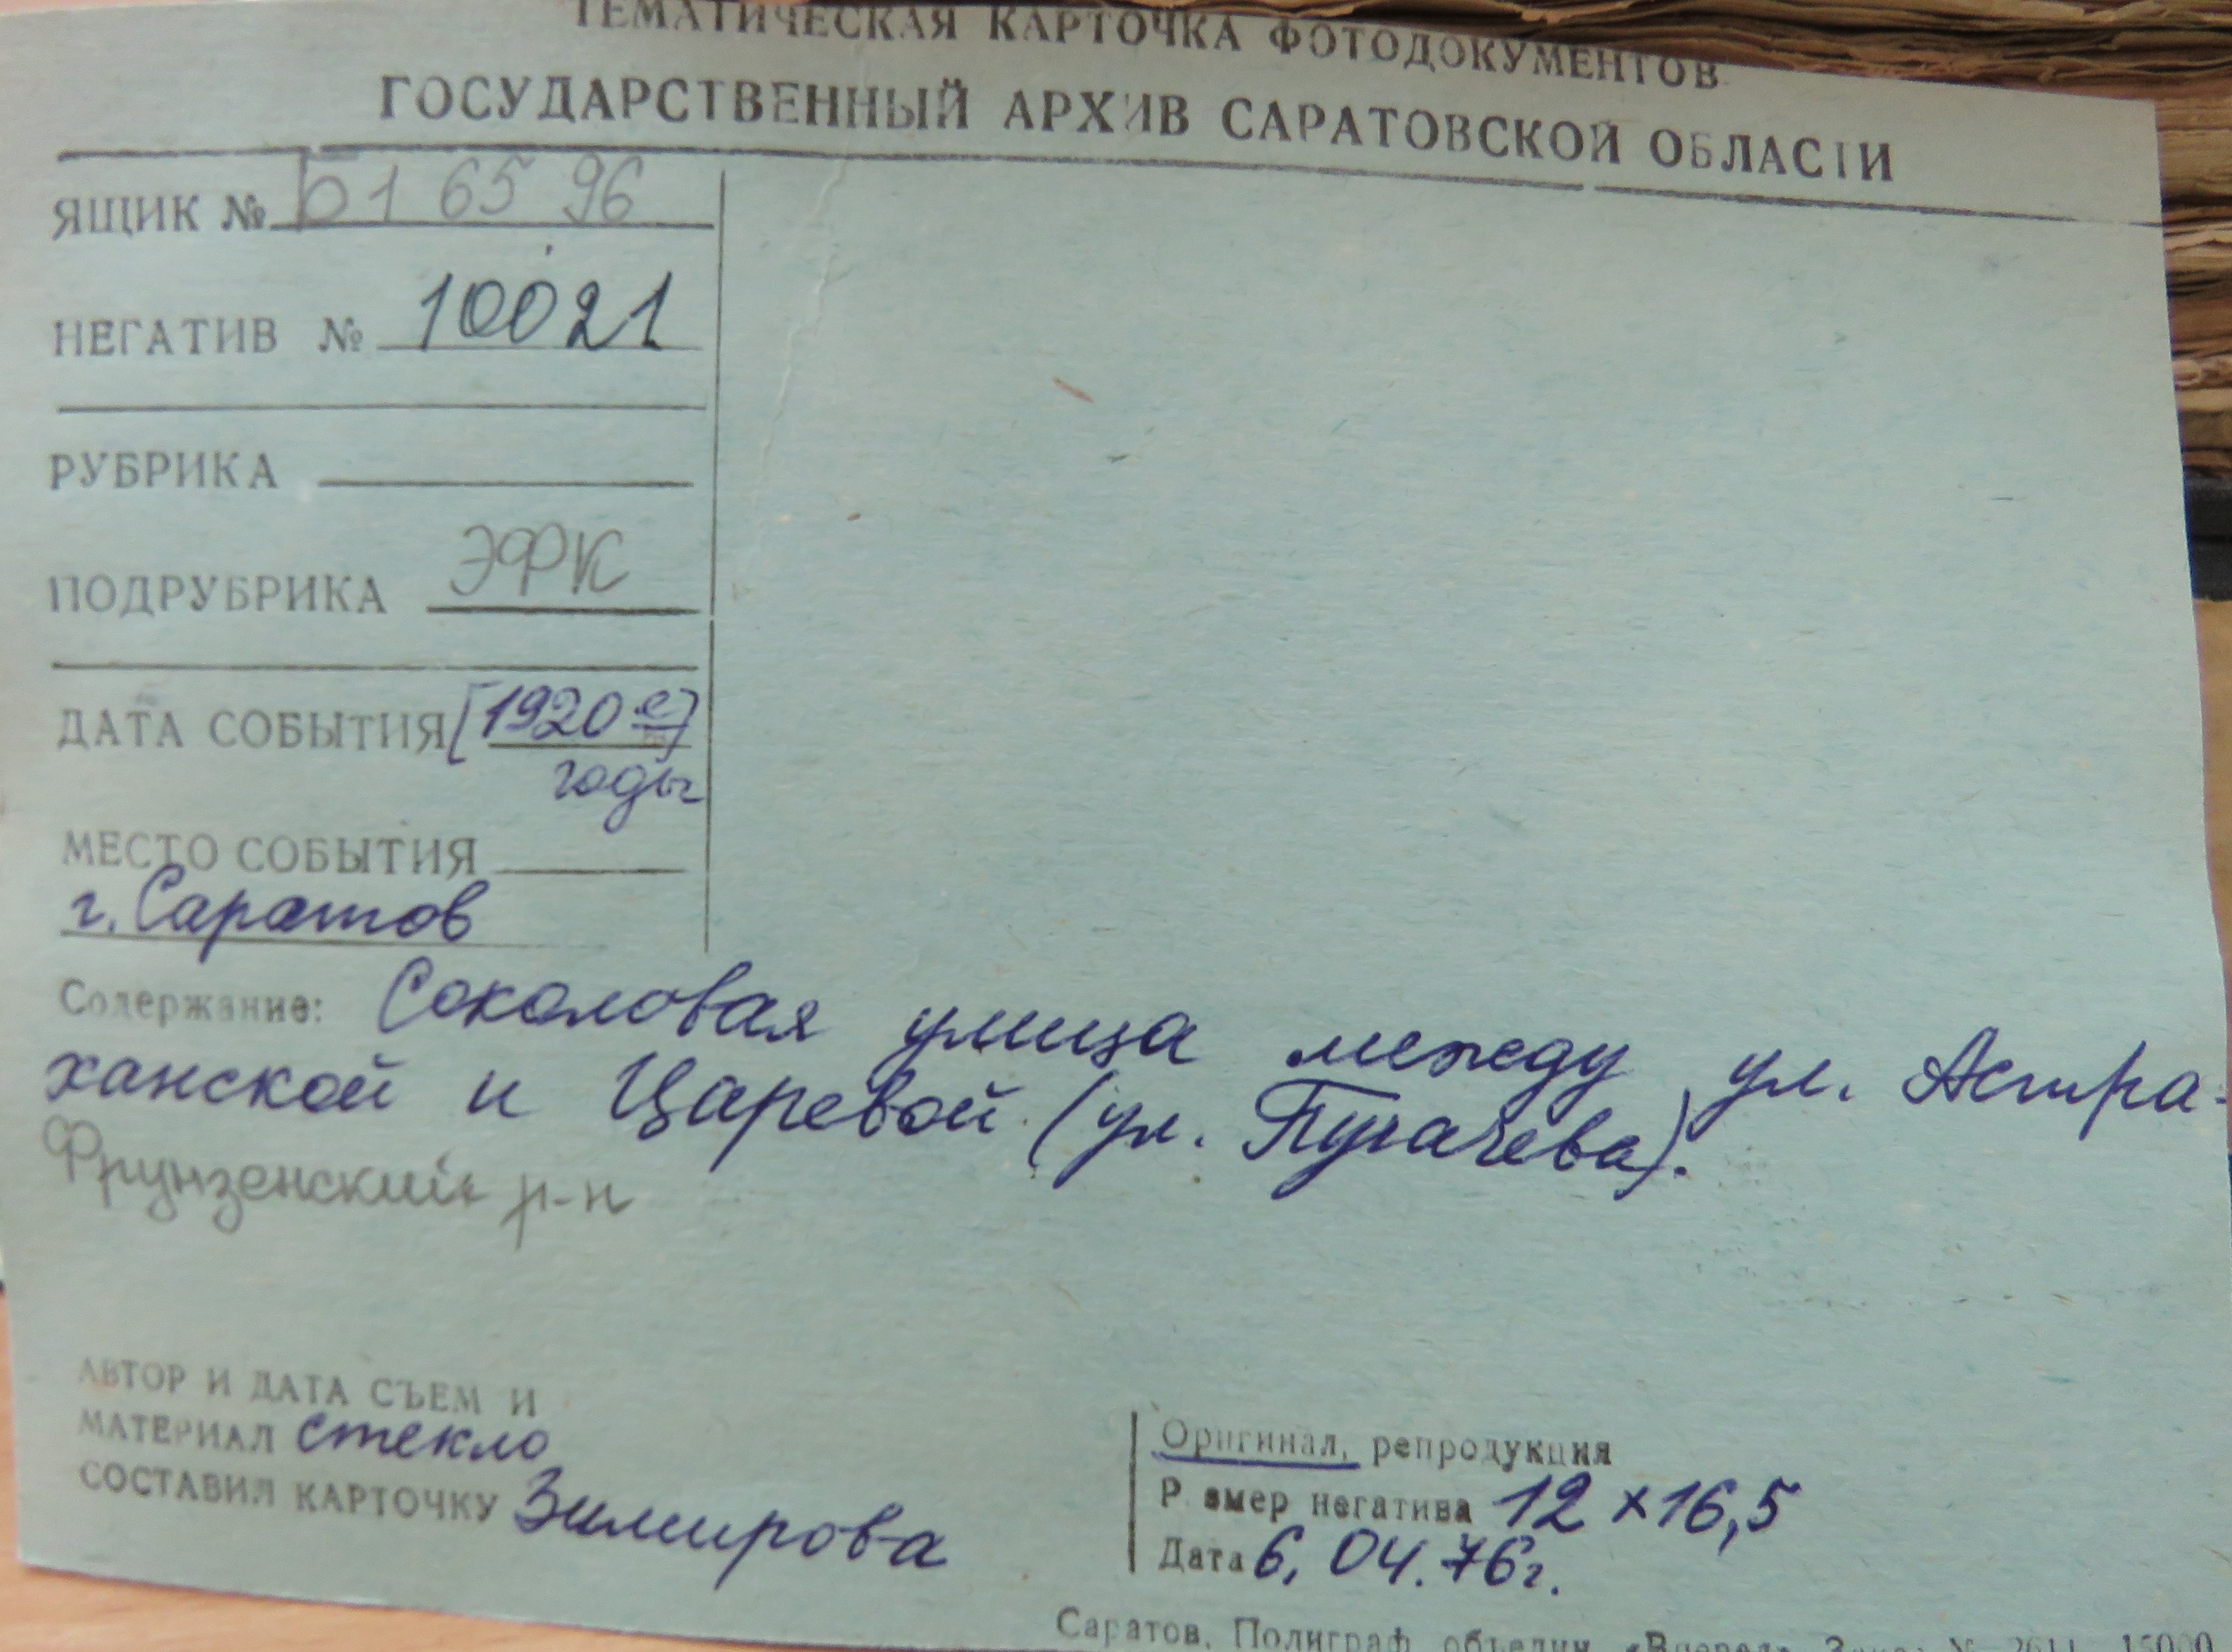 ТЕМАТИЧЕСКАЯ КАРТОЧКА ФОТОДОКУМЕНТОВ
ГОСУДАРСТВЕННЫЙ АРХИВ САРАТОВСКОЙ ОБЛАСТИ
ЯЩИК № 6596
НЕГАТИВ № 10021
РУБРИКА
ПОДРУБРИКА ЭФК
ДАТА СОБЫТИЯ [1920е]
годы
МЕСТО СОБЫТИЯ
г. Саратов
Содержание: Соколовая улица между ул. Астра-
ханской и Царевой (ул. Пугачева).
Фрунзенский р-н
АВТОР И ДАТА СЪЕМ И
МАТЕРИАЛ стекло
СОСТАВИЛ КАРТОЧКУ Зимирова
Оригинал, репродукция
Р змер негатива 12 × 16,5
Дата 6. 04. 76г.
Саратов. Полиграф. объедин.